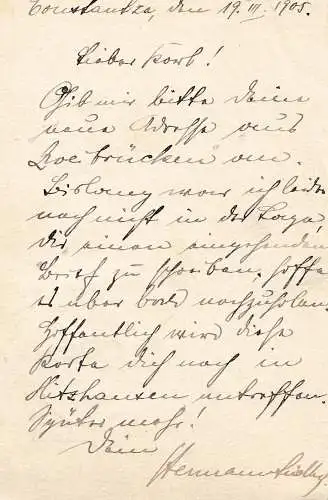 Constantza, den 19. III. 1905.
Lieber Korb!
Gib mir bitte Deine
neue Adresse aus
Zweibrücken an.
Bislang war ich leider
noch nicht in der Lage,
Dir einen eingehenden
Brief zu schreiben, hoffe
es aber bald nachzuholen.
Hoffentlich wird diese
Karte Dich noch in
antreffen.
Später mehr!
Dein
Hermann